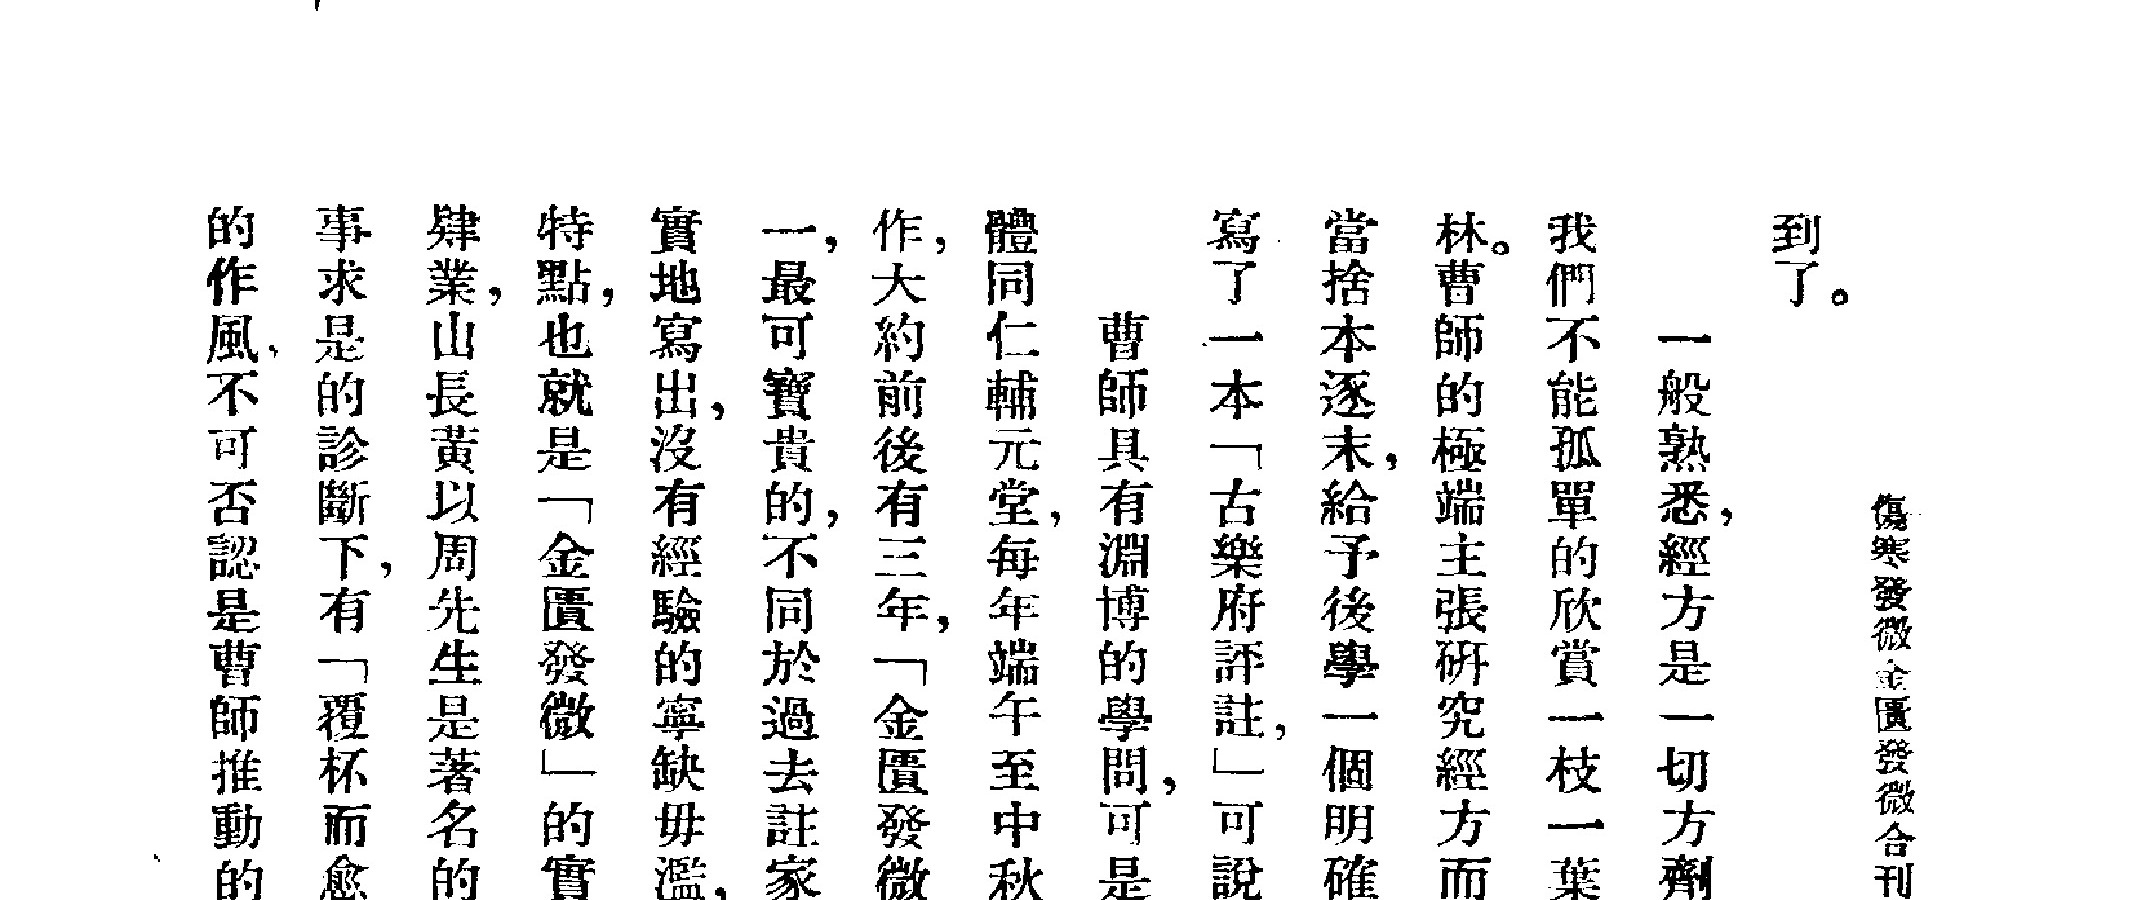 傷寒發微金匱發微合刊
到了。
一般熟悉，經方是一切方劑
我們不能孤單的欣賞一枝一葉
林。曹師的極端主張研究經方而
當捨本逐末，給予後學一個明確
寫了一本「古樂府評註，」可說
曹師具有淵博的學問，可是
體同仁輔元堂，每年端午至中秋
作，大約前後有三年，「金匱發微
一，最可寶貴的，不同於過去註家
實地寫出，沒有經驗的寧缺毋濫，
特點，也就是「金匱發微」的實
肄業，山長黃以周先生是著名的
事求是的診斷下，有「覆杯而愈
的作風，不可否認是曹師推動的